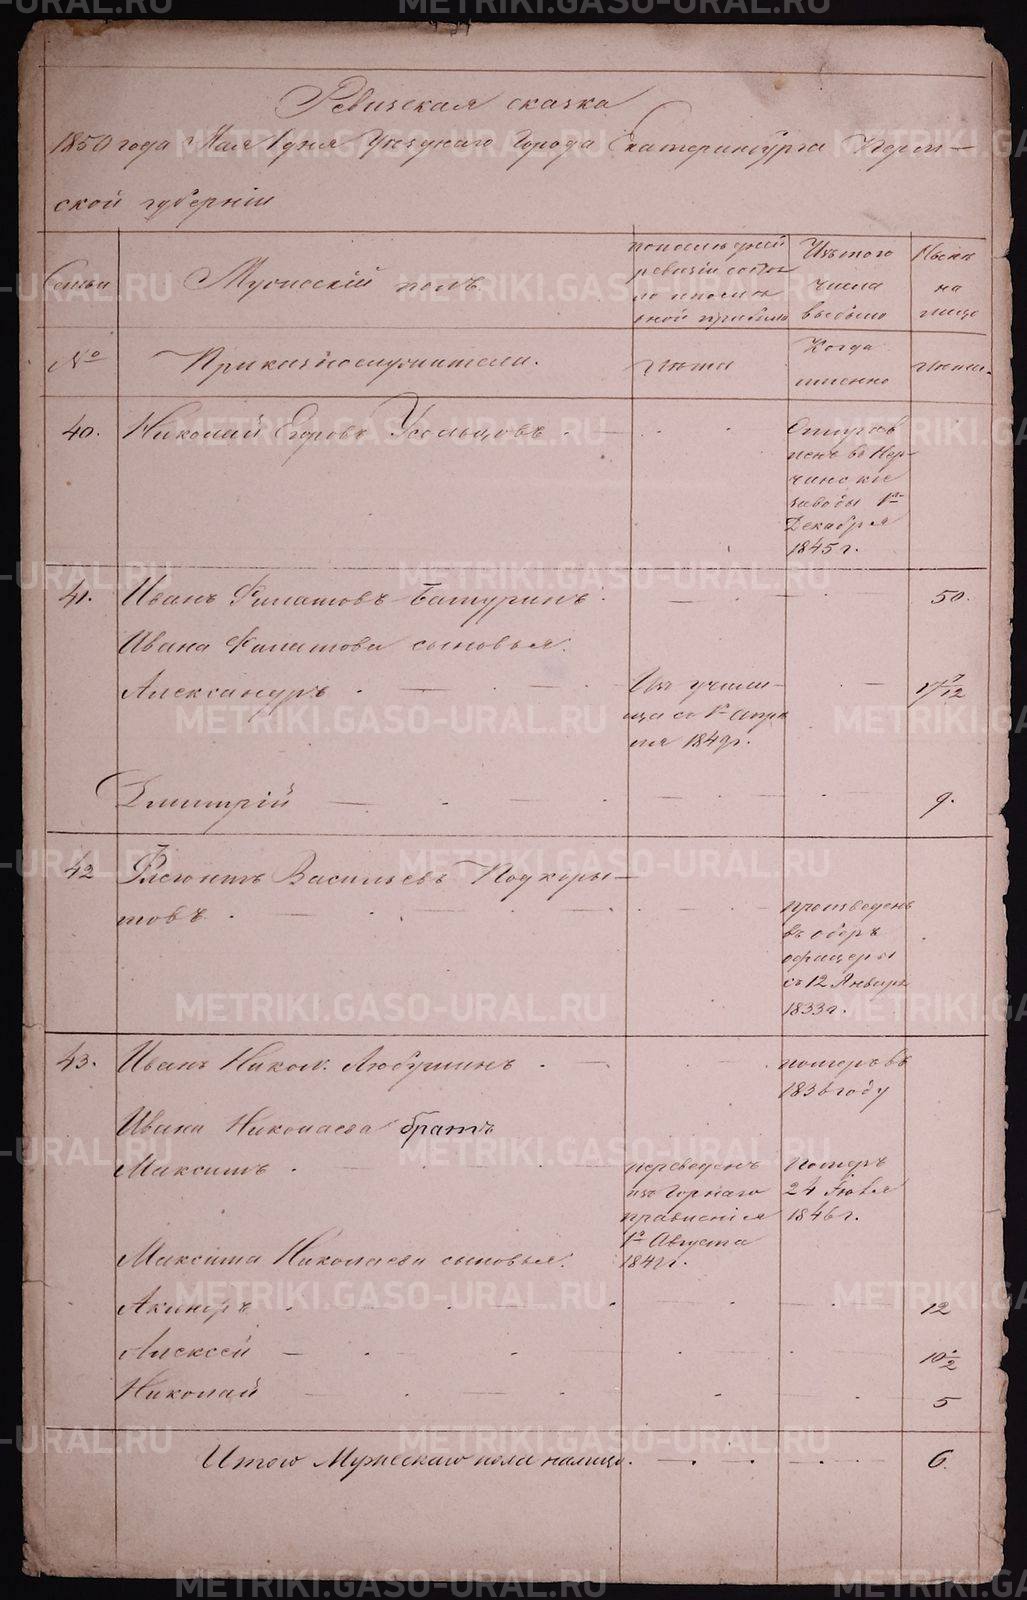 Ревизская сказка
1850 года Мая дня Уезднаго Города Екатеринбурга Перм-
ской губерніи
Семьи
Мужескій полъ
по последней
ревизіи состоя
ло и после
оной прибыло
Изъ того
числа
выбыло
Ныне
на
лицо
№
Приказнослужители.
лета
Когда
именно
лета.
40. Николай Егоровъ Усольцовъ
Отправ
ленъ въ Нер-
чинские
заводы 1го
Декабря
1845 г.
41. Иванъ Филатовъ Батуринъ 50.
Ивана Филатова сыновья:
Александръ 17 7/12
Изъ учили-
ща съ 1го Апре
ля 1849 г.
Дмитрій 9.
42 Васильевъ Подкоры-
товъ
произведенъ
въ оберъ
офицеры
съ 12 Января
1833 г.
43. Иванъ Никол. Любушинъ
померъ въ
1836 году
Ивана Николаева братъ
Максимъ
переведенъ
изъ Горнаго
правленія
1го Августа
184 г.
Померъ
24
1846 г.
Максима Николаева сыновья:
12
Алексей 10 1/2
Николай 5
Итого Мужескаго пола налицо. 6.
METRIKI.GASO-URAL.RU